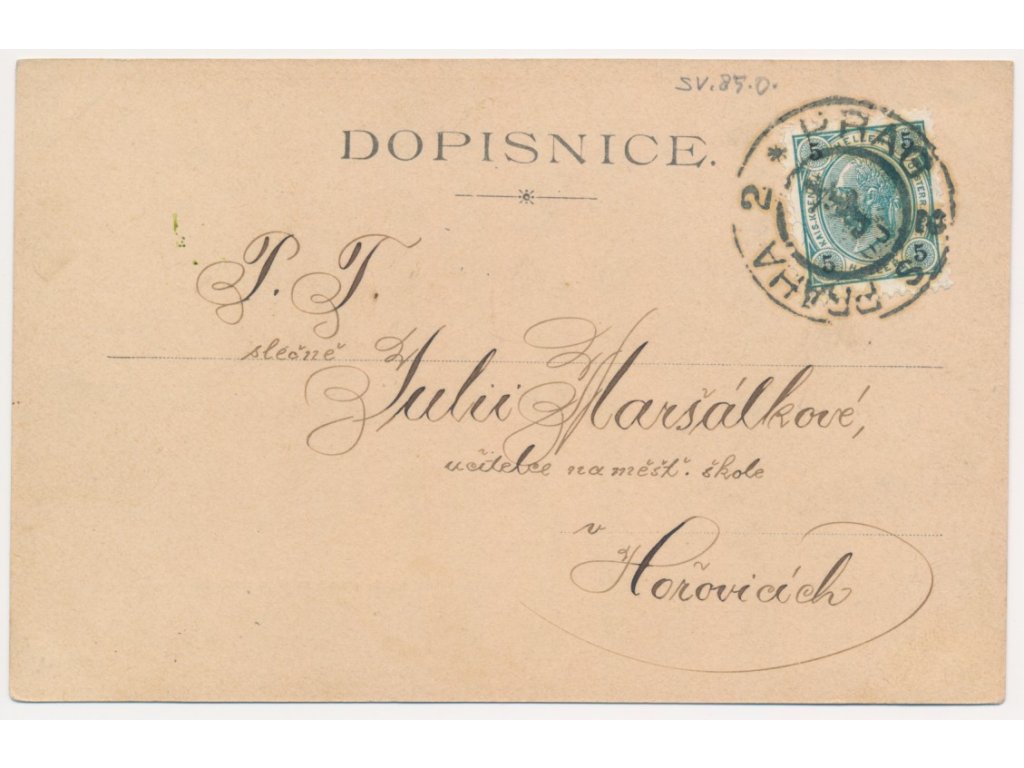 SV.85.O.
DOPISNICE.
PRAG
PRAHA 2
5 5
5 5
P. T.
slečně
Julii Maršálkové,
učitelce na měšť. škole
v
Hořovicích